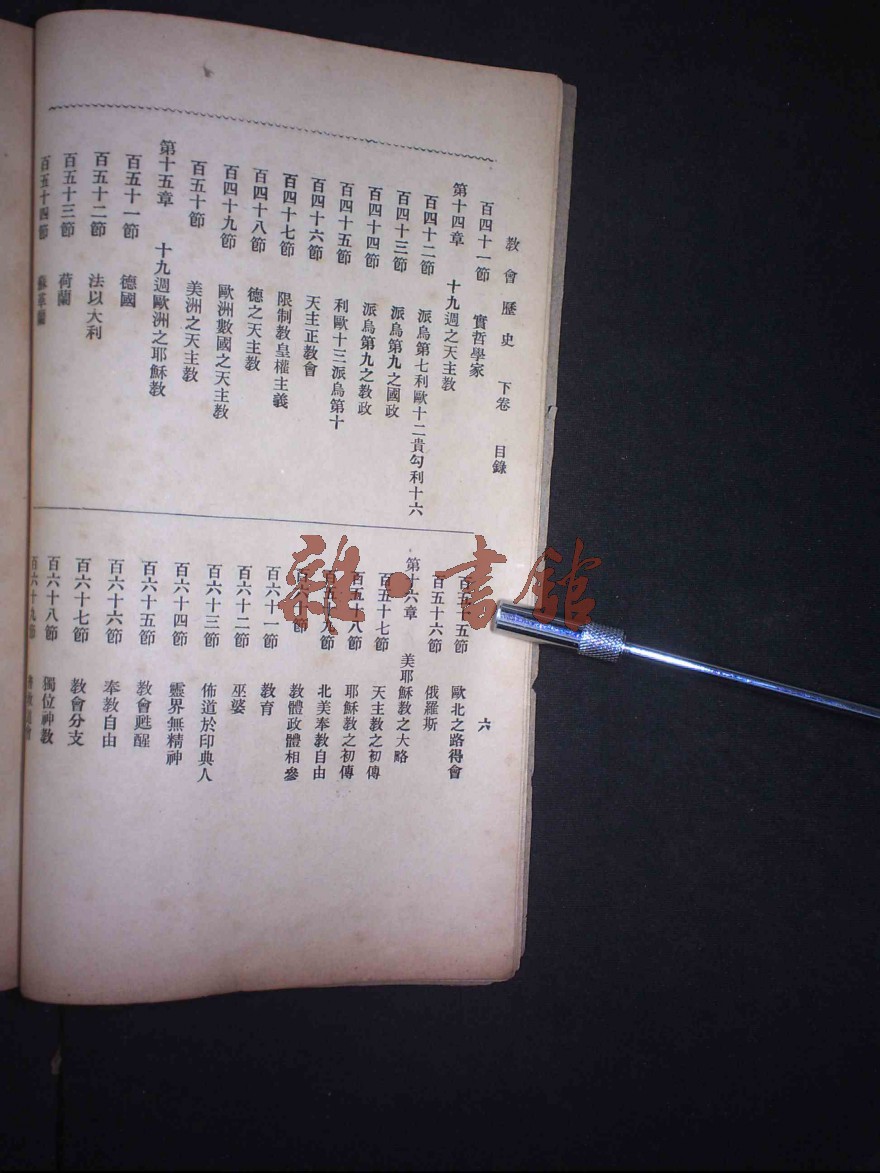 教會歷史 下卷 目錄 六
百四十一節 實哲學家
第十四章 十九週之天主教
百四十二節 派烏第七利歐十二貴勾利十六
百四十三節 派烏第九之國政
百四十四節 派烏第九之教政
百四十五節 利歐十三派烏第十
百四十六節 天主正教會
百四十七節 限制教皇權主義
百四十八節 德之天主教
百四十九節 歐洲數國之天主教
百五十節 美洲之天主教
第十五章 十九週歐洲之耶穌教
百五十一節 德國
百五十二節 法以大利
百五十三節 荷蘭
百五十四節 蘇革蘭
百五十五節 歐北之路得會
百五十六節 俄羅斯
第十六章 美耶穌教之大略
百五十七節 天主教之初傳
百五十八節 耶穌教之初傳
百五十九節 北美奉教自由
百六十節 教體政體相參
百六十一節 教育
百六十二節 巫婆
百六十三節 佈道於印典人
百六十四節 靈界無精神
百六十五節 教會甦醒
百六十六節 奉教自由
百六十七節 教會分支
百六十八節 獨位神教
百六十九節
雜·書館